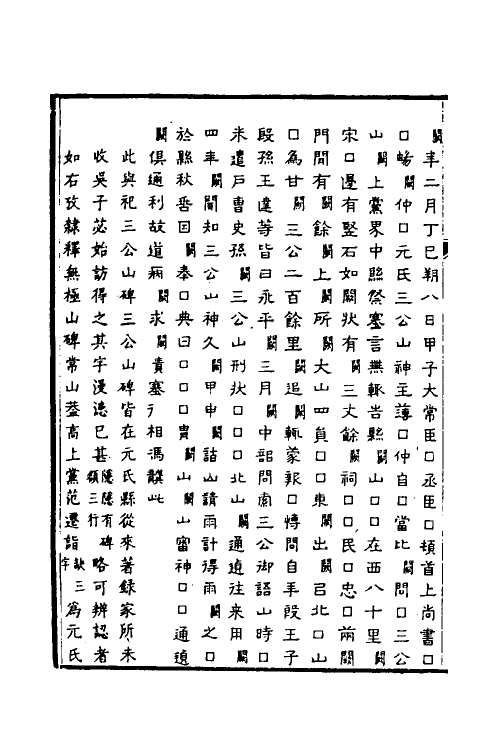 闕年二月丁巳朔八日甲子大常臣口丞臣口頓首上尚書口
口暢闕仲口元氏三公山神主薄口仲自口當比闕問口三公
山闕上黨界中縣祭塞言無輒告縣闕山口口在西八十里闕
宋口邊有堅石如闕狀有闕三丈餘闕祠口口民口忠口兩闕
門間有闕餘闕上闕所闕大山四負口口東闕出闕呂北口山
口為甘闕闕三公二百餘里闕追闕輒蒙報口愽問自手段王子
段孫王達等皆曰永平闕三月闕中部問索三公御語山時口
来遣戶曹史孫闕三公山刑狀口口口北山闕通道往来用闕
四年闕聞知三公山神久闕甲申闕詣山請雨計得雨闕之口
於縣秋垂囙闕奉口典曰口口口貴闕山闕山審神口口通道
闕俱通利故道病闕求闕貴塞行相馮龔此
此與祀三公山碑三公山碑皆在元氏縣從來著錄家所未
收吳子苾始訪得之其字漫漶已甚隱隱有碑額三行略可辨認者
如右攷隸釋無極山碑常山葢高上黨范遷詣缺三字為元氏